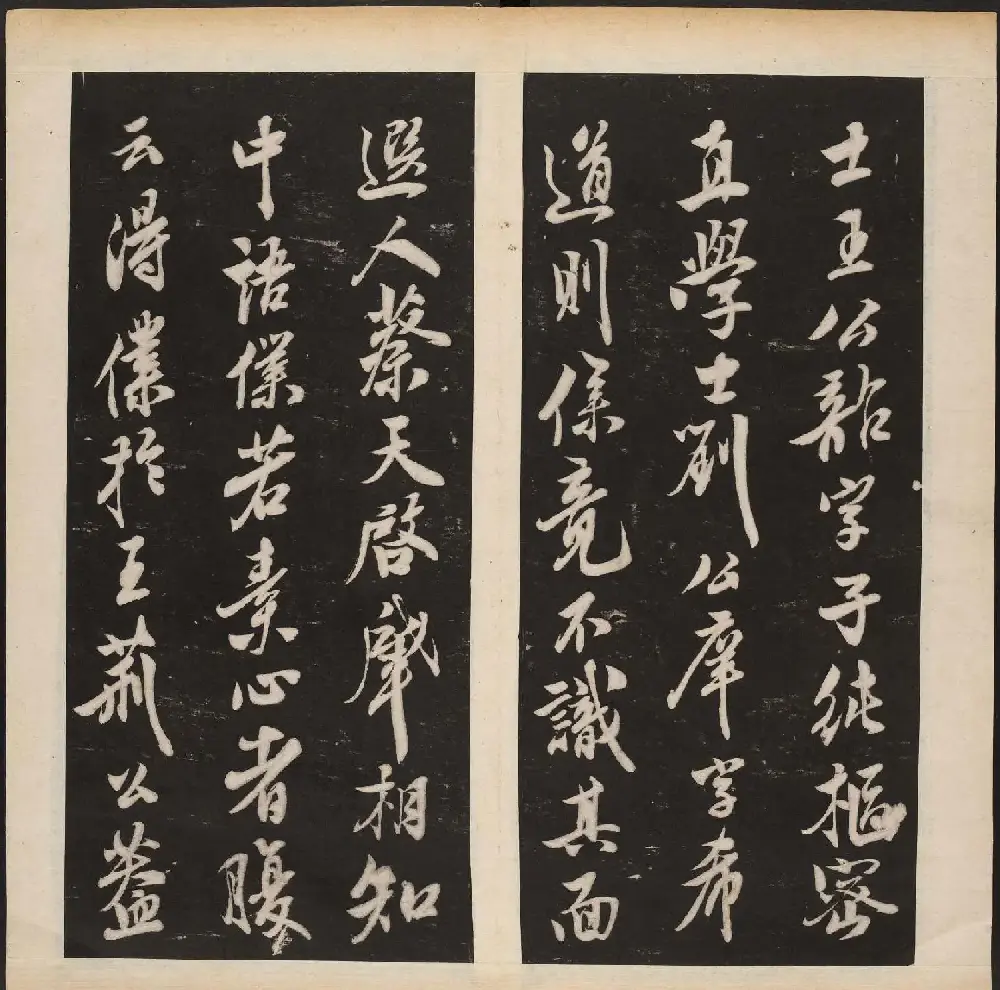 士王公韶字子純樞密
直學士劉公庠字希
道則僕竟不識其面
遐人蔡天啓肇相知
中語僕若素心者腹
云得僕於王荊公蓋